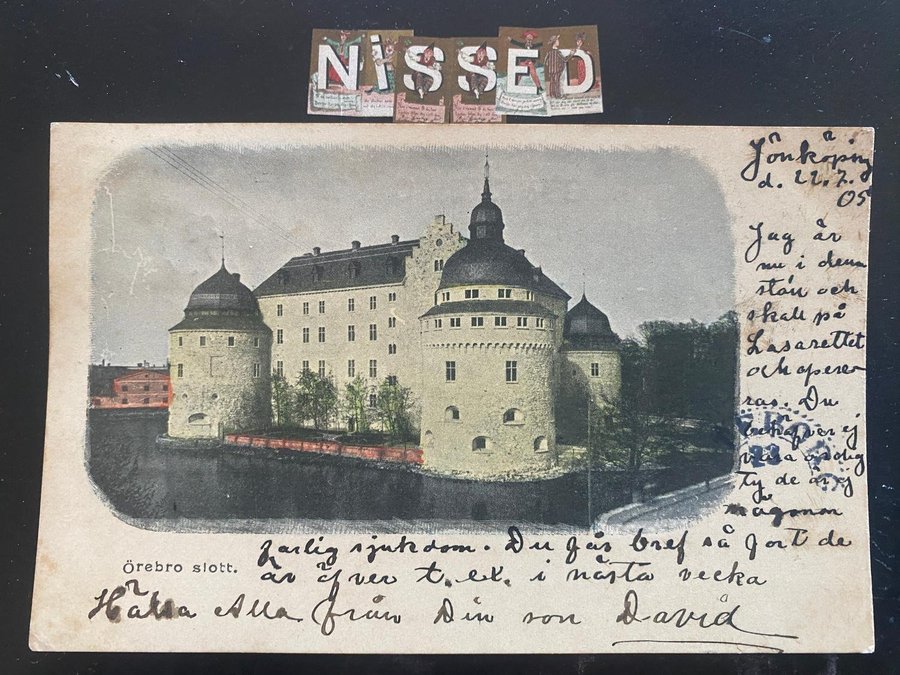 NiSSED
Jönköping
d. 22.7.
05
Jag är
nu i denna
stan och
skall på
Lasarettet
och operer
ras. Du
behöfver ej
vara orolig
ty de är ej
någon
farlig sjukdom. Du får bref så fort de
är öfver t. ex. i nästa vecka
Hälsa Alla från Din son David
Örebro slott.